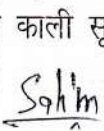 काली सू
Sahim